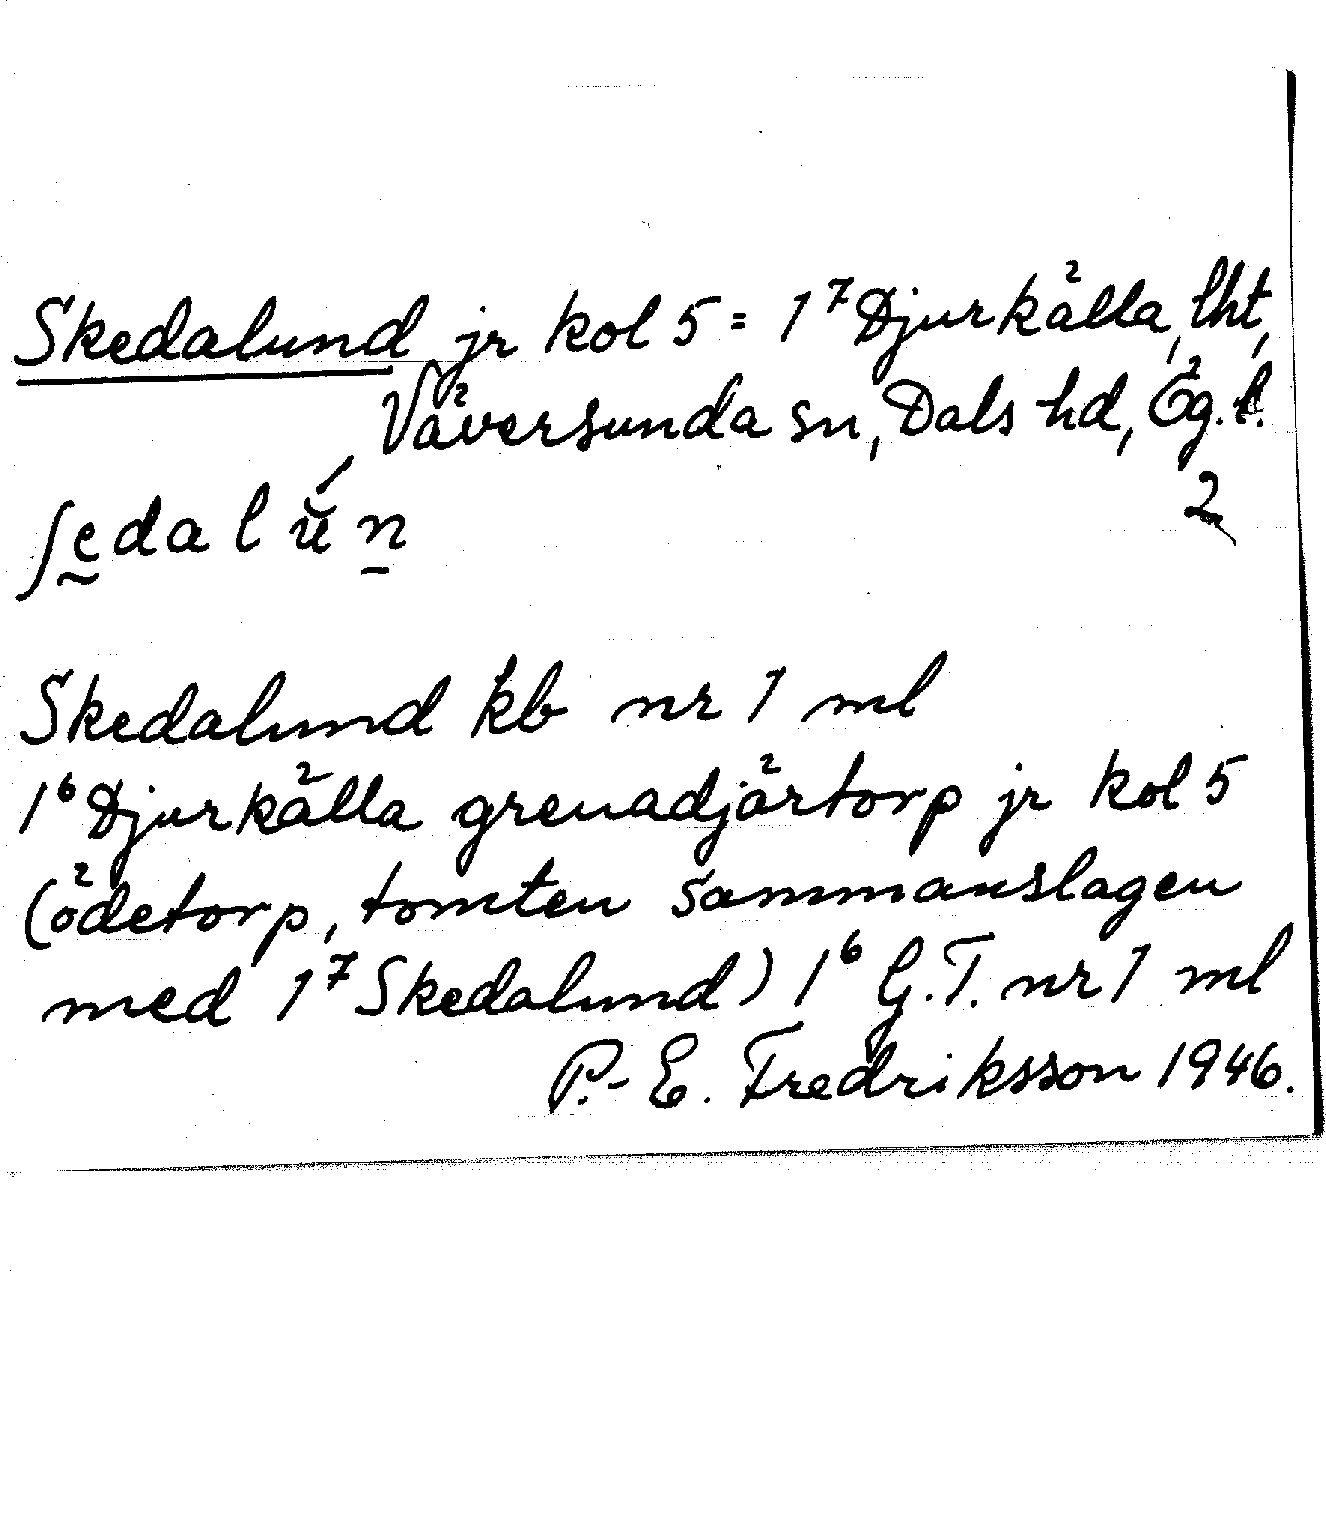 Skedalund jr kol 5 = 1⁷ Djurkälla, lht,
Väversunda sn, Dals hd, Ög. l.
2
ʃedalún
Skedalund kb nr 1 ml
1⁶ Djurkälla grenadjärtorp jr kol 5
(ödetorp, tomten sammanslagen
med 1⁷ Skedalund) 1⁶ G.T. nr 1 ml
P.-E. Fredriksson 1946.